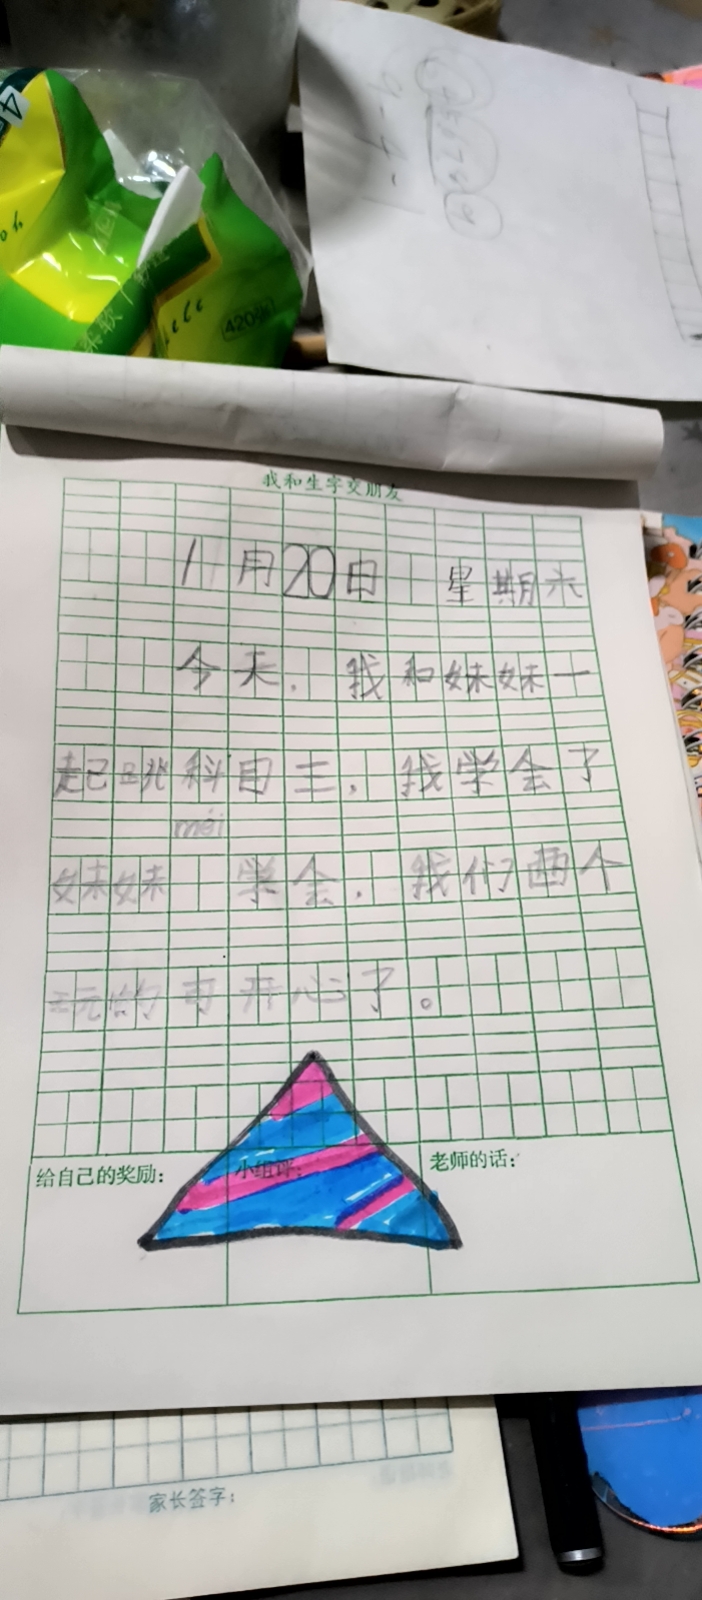 420张
我和生字交朋友
11月20日 星期六
今天，我和妹妹一
起跳科目三，我学会了
méi
妹妹 学会，我们两个
玩的可开心了。
给自己的奖励：
小组评：
老师的话：
家长签字：